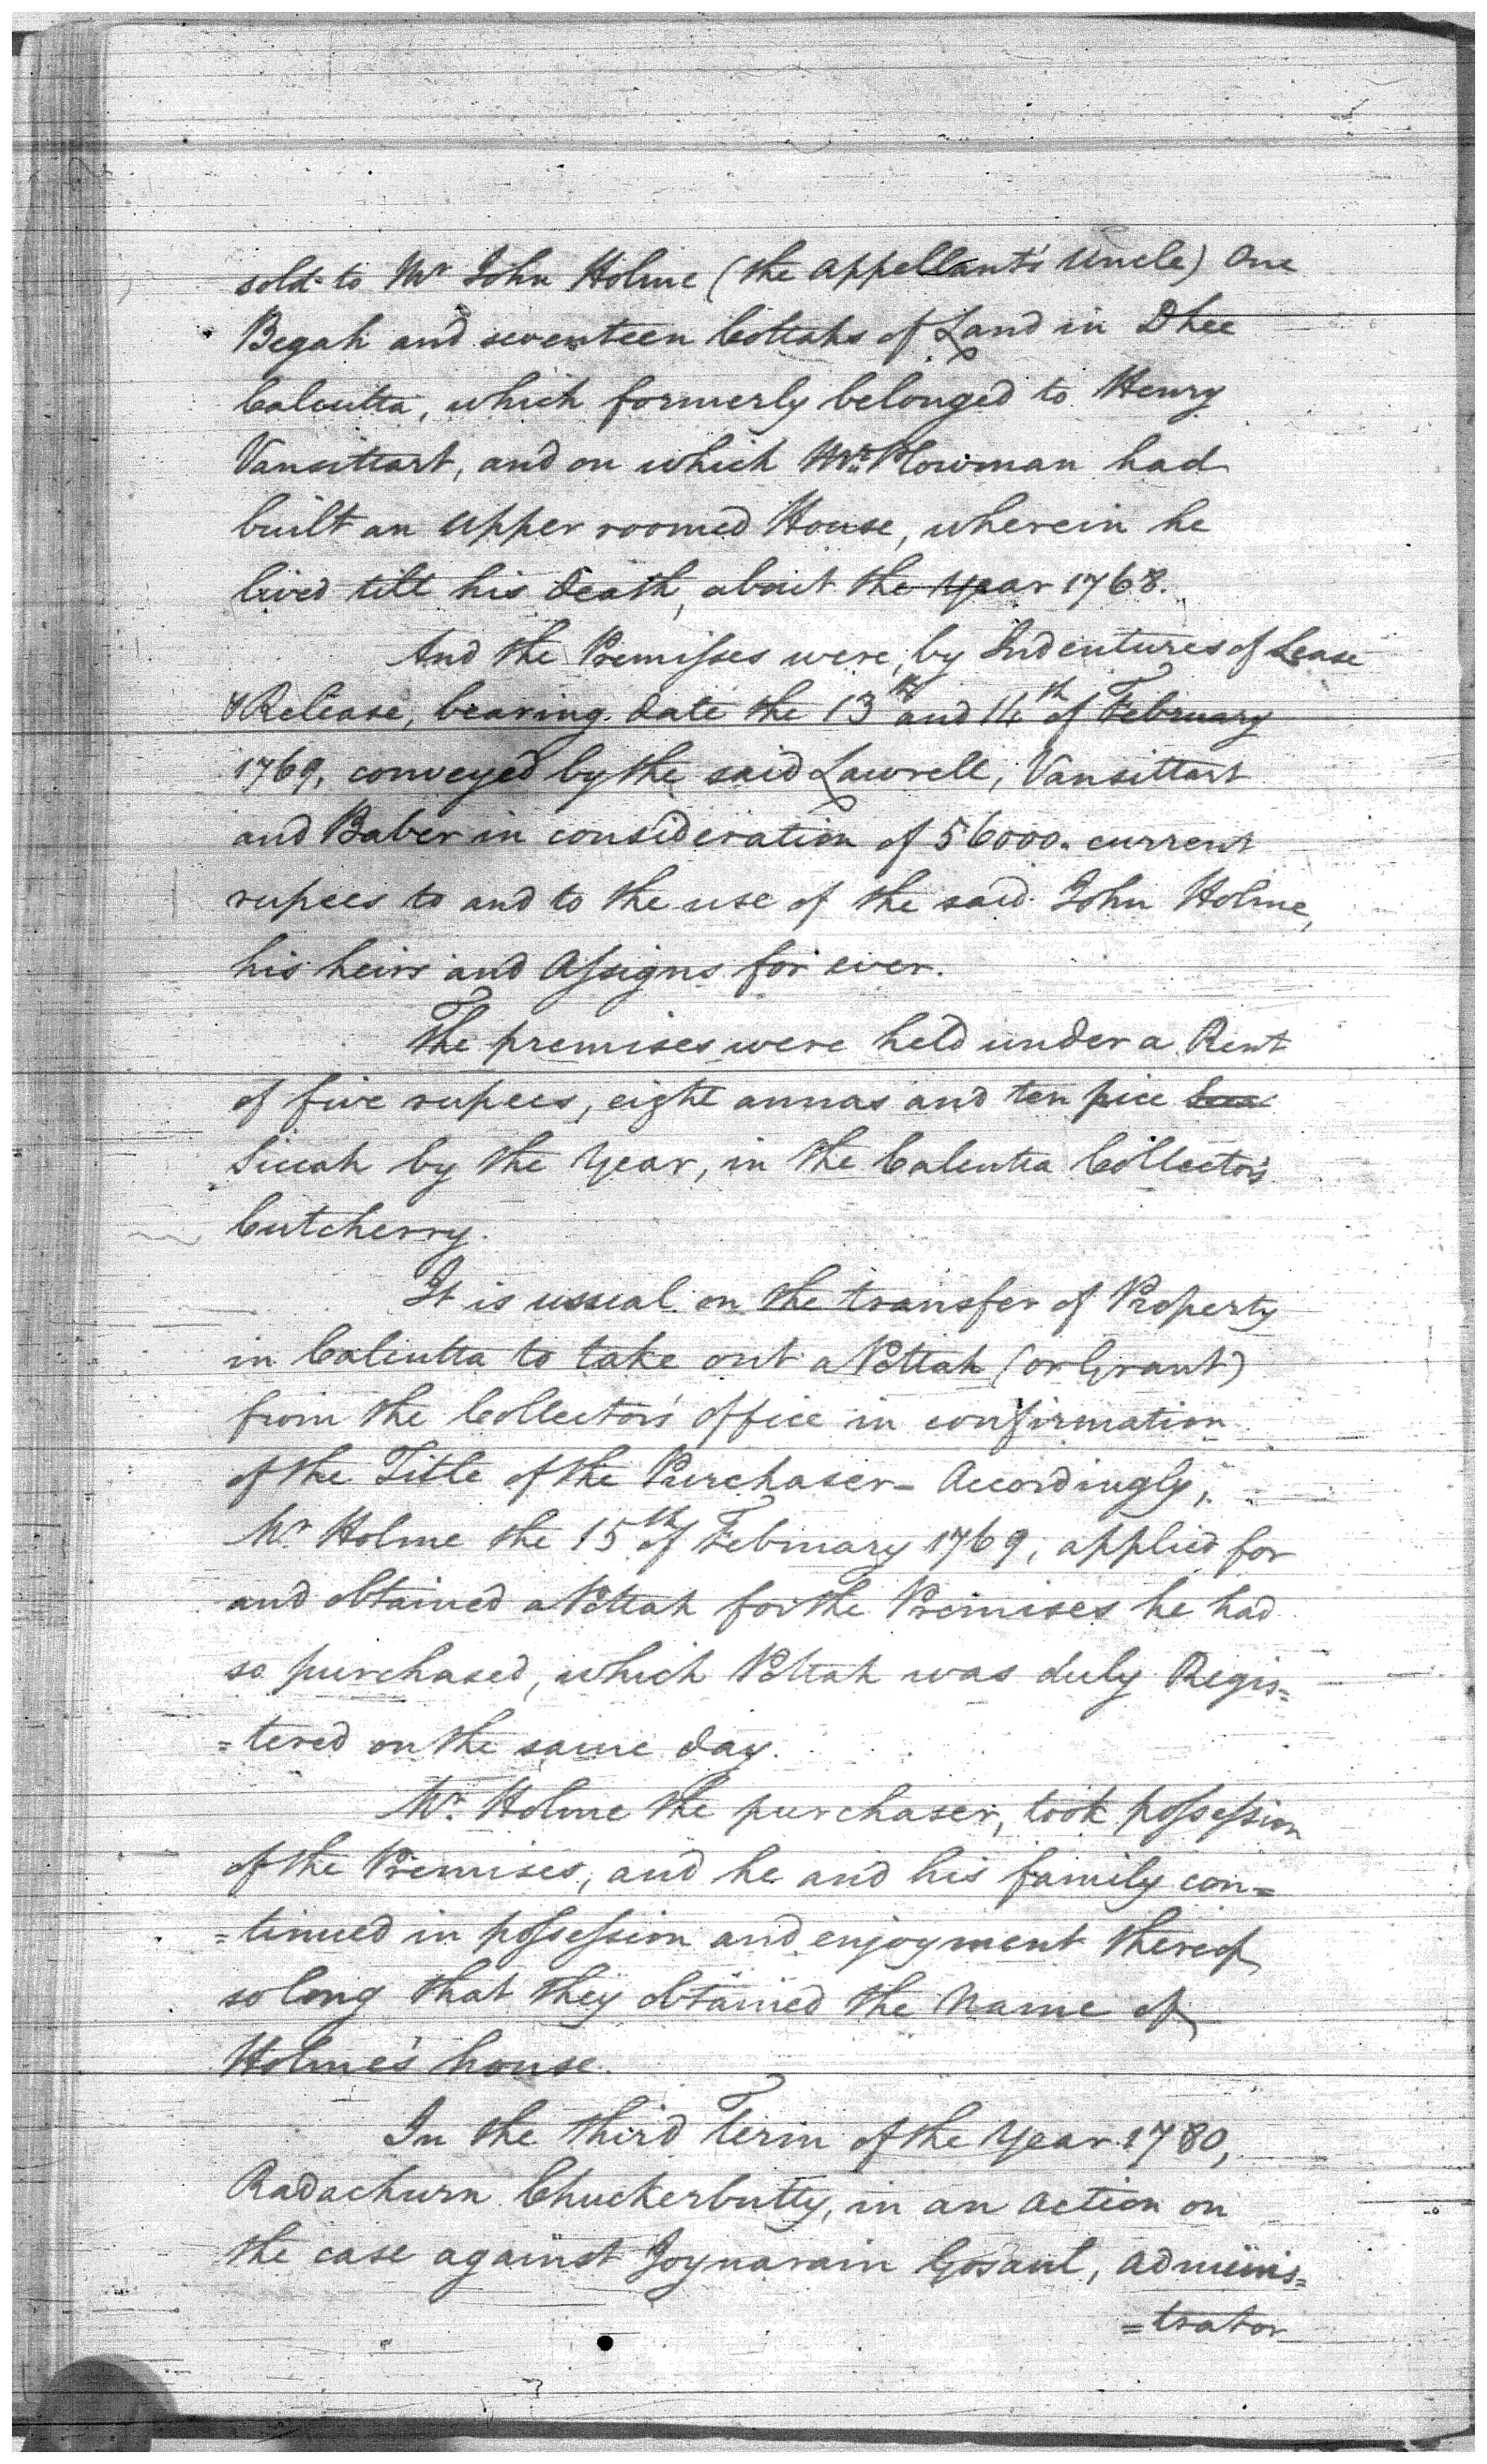 sold to Mr John Holme (the appellant's Uncle) One
Begah and seventeen Cottahs of Land in Dhee
Calcutta, which formerly belonged to Henry
Vansittart, and on which Mr. Plowman had
built an upper roomed House, wherein he
lived till his death, about the year 1768.
And the Premisses were, by Indentures of Lease
& Release, bearing date the 13th and 14th of February
1769, conveyed by the said Lawrell, Vansittart
and Baber in consideration of 56000. current
rupees to and to the use of the said John Holme,
his heirs and Assigns for ever.
The premises were held under a Rent
of five rupees, eight annas and ten pice
Siccah by the Year, in the Calcutta Collector's
Cutcherry.
It is usual on the transfer of Property
in Calcutta to take out a Pottah (or Grant)
from the Collector's office in confirmation
of the Title of the Purchaser - Accordingly,
Mr. Holme the 15th of February 1769, applied for
and obtained a Pottah for the Premises he had
so purchased, which Pottah was duly Regis=
=tered on the same day.
Mr. Holme the purchaser, took possession
of the Premises, and he and his family con=
=tinued in possession and enjoyment thereof
so long that they obtained the Name of
Holme's house.
In the third Term of the Year 1780,
Radachurn Chuckerbutty, in an action on
the case against Joynarain Gosaul, adminis=
=trator